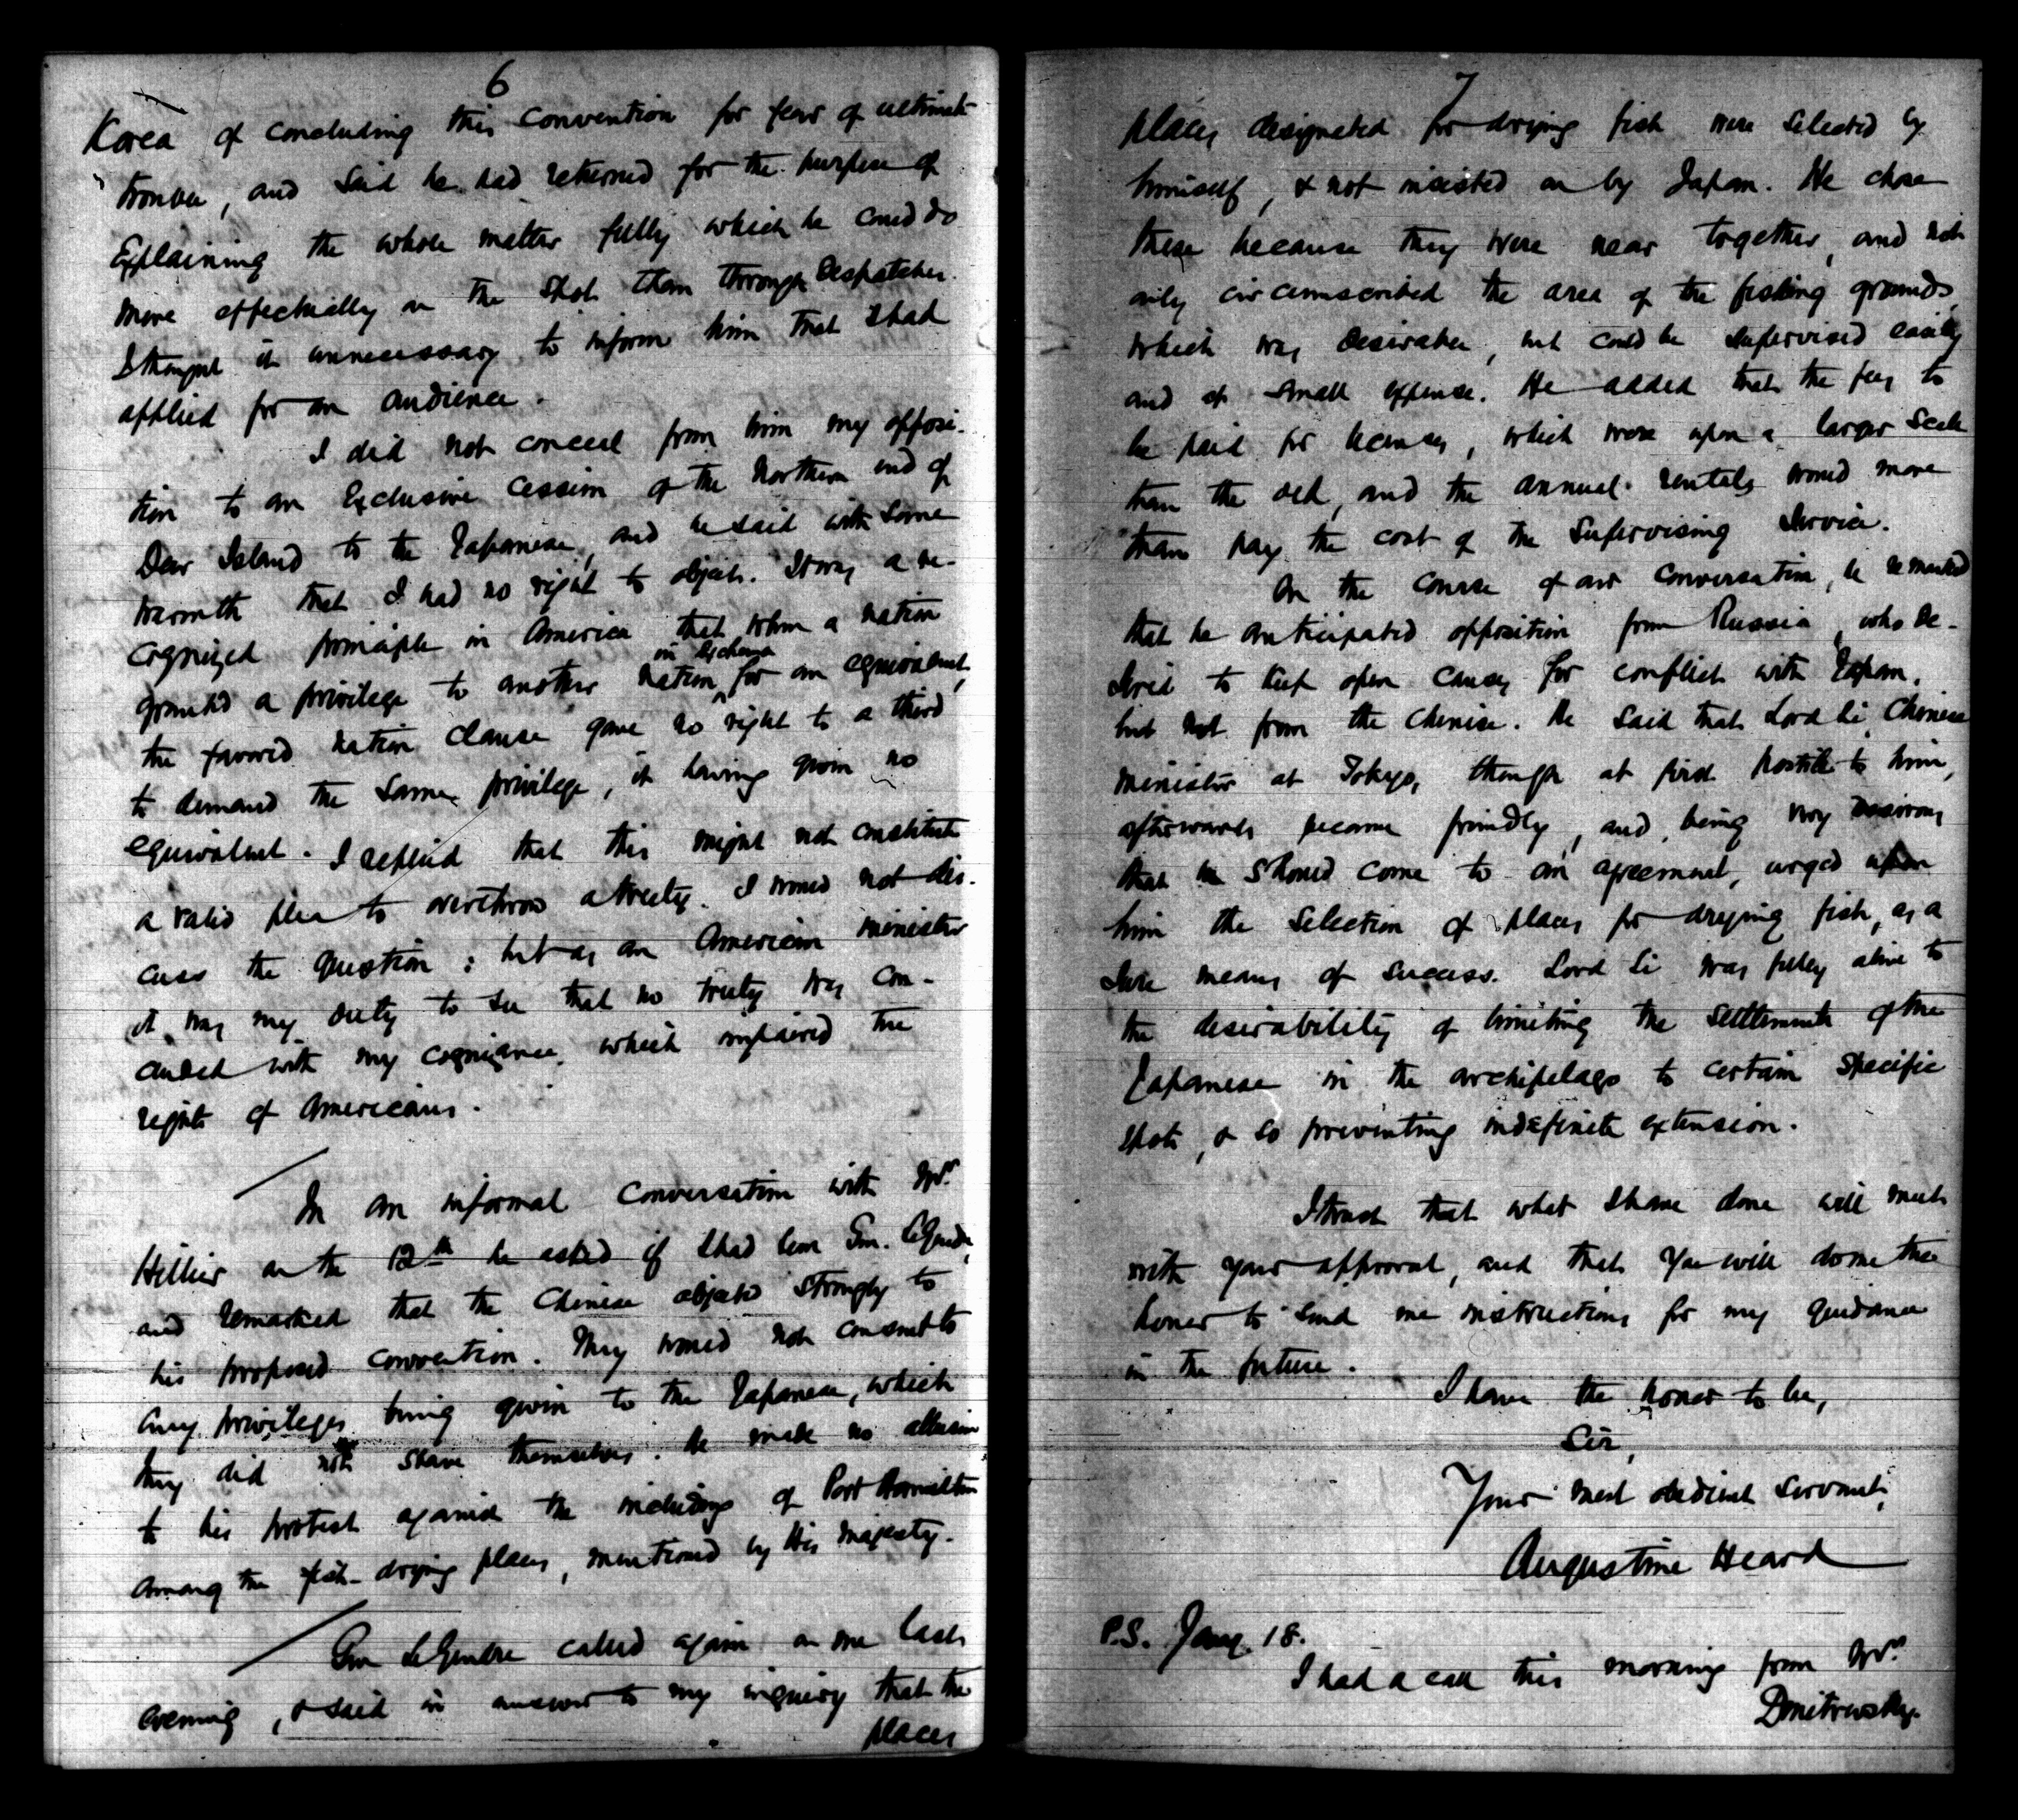 6
Korea of concluding this convention for fear of ultimate
trouble, and said he had returned for the purpose of
explaining the whole matter fully which he could do
more effectually on the spot than through despatches.
I thought it unnecessary to inform him that I had
applied for an audience.
I did not conceal from him my opposi-
tion to an exclusive cession of the Northern end of
Deer Island to the Japanese, and he said with some
warmth that I had no right to object. It was a re-
cognized principle in America that when a nation
in exchange
granted a privilege to another nation for an equivalent,
the favored nation clause gave no right to a third
to demand the same privilege, it having given no
equivalent. I replied that this might not constitute
a valid plea to overthrow a treaty. I would not dis-
cuss the question; but as an American minister
it was my duty to see that no treaty was con-
cluded with my cognizance which impaired the
rights of Americans.
In an informal conversation with Mr.
Hillier on the 12th he asked if I had seen Gen. LeGendre,
and remarked that the Chinese objected strongly to
his proposed convention. They would not consent to
any privileges being given to the Japanese, which
they did not share themselves. He made no allusion
to his protest against the including of Port Hamilton
among the fish-drying places, mentioned by His Majesty.
Gen LeGendre called again on me last
evening, & said in answer to my inquiry that the
places
7
places designated for drying fish were selected by
himself, & not insisted on by Japan. He chose
these because they were near together, and not
only circumscribed the area of the fishing grounds,
which was desirable, but could be supervised easily
and at small expense. He added that the fees to
be paid for licenses, which were upon a larger scale
than the old, and the annual rentals would more
than pay the cost of the supervising service.
In the course of our conversation, he remarked
that he anticipated opposition from Russia, who de-
sired to keep open causes for conflict with Japan,
but not from the Chinese. He said that Lord Li, Chinese
minister at Tokyo, though at first hostile to him,
afterwards became friendly, and, being very desirous
that he should come to an agreement, urged upon
him the selection of places for drying fish, as a
sure means of success. Lord Li was fully alive to
the desirability of limiting the settlements of the
Japanese in the archipelago to certain specific
spots, & so preventing indefinite extension.
I trust that what I have done will meet
with your approval, and that you will do me the
honor to send me instructions for my guidance
in the future.
I have the honor to be,
Sir,
Your most obedient servant,
Augustine Heard
P.S. Jany. 18.
I had a call this morning from Mr.
Dmitrevsky.